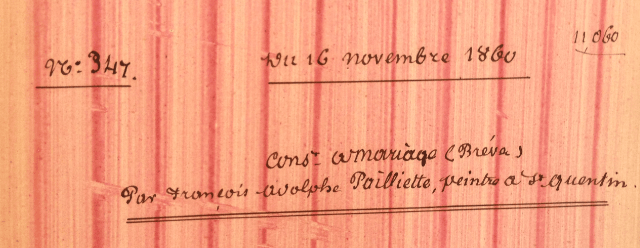 11,060
N°: 347.
Du 16 novembre 1860
Const. à mariage (Brévet)
Par François adolphe Pailliette, peintre à St. quentin.